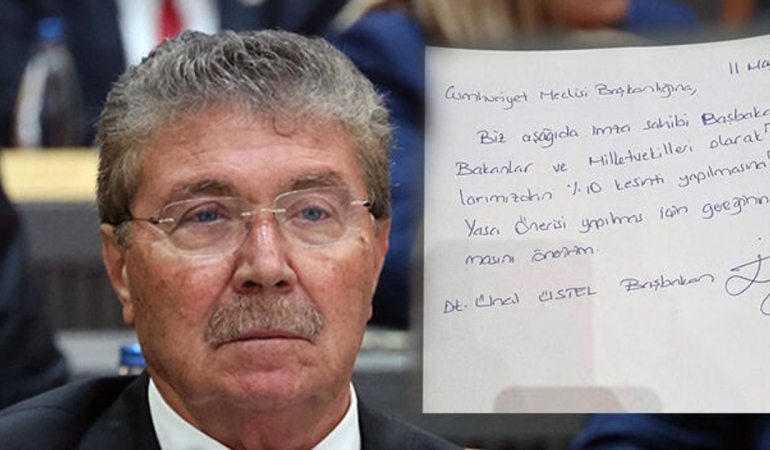 11 Ma
Cumhuriyet Meclisi Başkanlığına,
Biz aşağıda imza sahibi Başbaka
Bakanlar ve Milletvekilleri olarak
larımızdan %10 kesinti yapılmasına
Yasa önerisi yapılması için gereğinin
masını öneririm.
Dt. Ünal ÜSTEL Başbakan